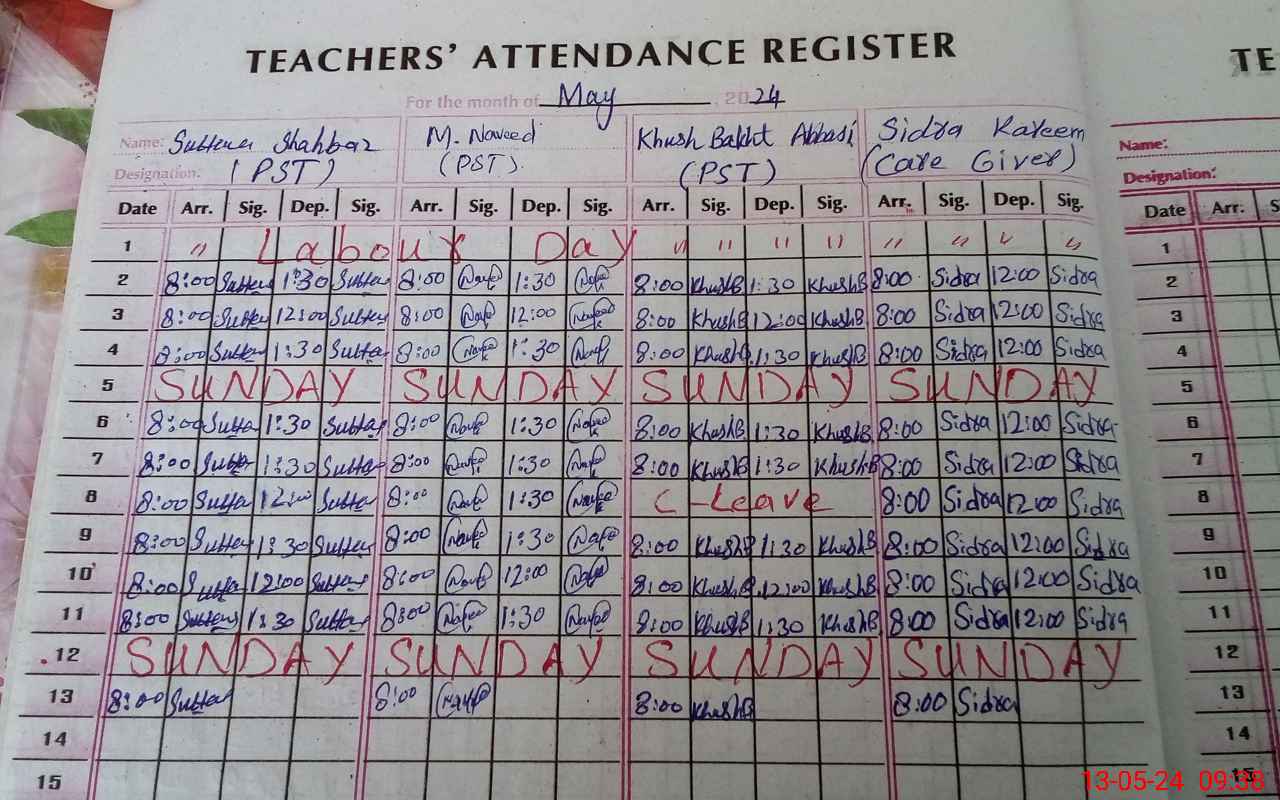 TEACHERS' ATTENDANCE REGISTER
TE
For the month of May, 2024
Name: Shahbaz M. Naveed Khush Bakht Abbasi Sidra Kareem Name:
Designation: (PST) (PST) (PST) (Care Giver) Designation:
Date Arr. Sig. Dep. Sig. Arr. Sig. Dep. Sig. Arr. Sig. Dep. Sig. Arr. Sig. Dep. Sig. Date Arr. S
1 " Labour Day " " " " " " " " 1
2 8:00 1:30 8:00 1:30 8:00 KhushB 1:30 KhushB 8:00 Sidra 12:00 Sidra 2
3 8:00 12:00 8:00 12:00 8:00 KhushB 12:00 KhushB 8:00 Sidra 12:00 Sidra 3
4 8:00 1:30 8:00 1:30 8:00 KhushB 1:30 KhushB 8:00 Sidra 12:00 Sidra 4
5 SUNDAY SUNDAY SUNDAY SUNDAY 5
6 8:00 1:30 8:00 1:30 8:00 KhushB 1:30 KhushB 8:00 Sidra 12:00 Sidra 6
7 8:00 1:30 8:00 1:30 8:00 KhushB 1:30 KhushB 8:00 Sidra 12:00 Sidra 7
8 8:00 12:00 8:00 1:30 C-Leave 8:00 Sidra 12:00 Sidra 8
9 8:00 1:30 8:00 1:30 8:00 KhushB 1:30 KhushB 8:00 Sidra 12:00 Sidra 9
10 8:00 12:00 8:00 12:00 8:00 KhushB 12:00 KhushB 8:00 Sidra 12:00 Sidra 10
11 8:00 1:30 8:00 1:30 8:00 KhushB 1:30 KhushB 8:00 Sidra 12:00 Sidra 11
12 SUNDAY SUNDAY SUNDAY SUNDAY 12
13 8:00 8:00 8:00 KhushB 8:00 Sidra 13
14 14
15 15
13-05-24 09:38